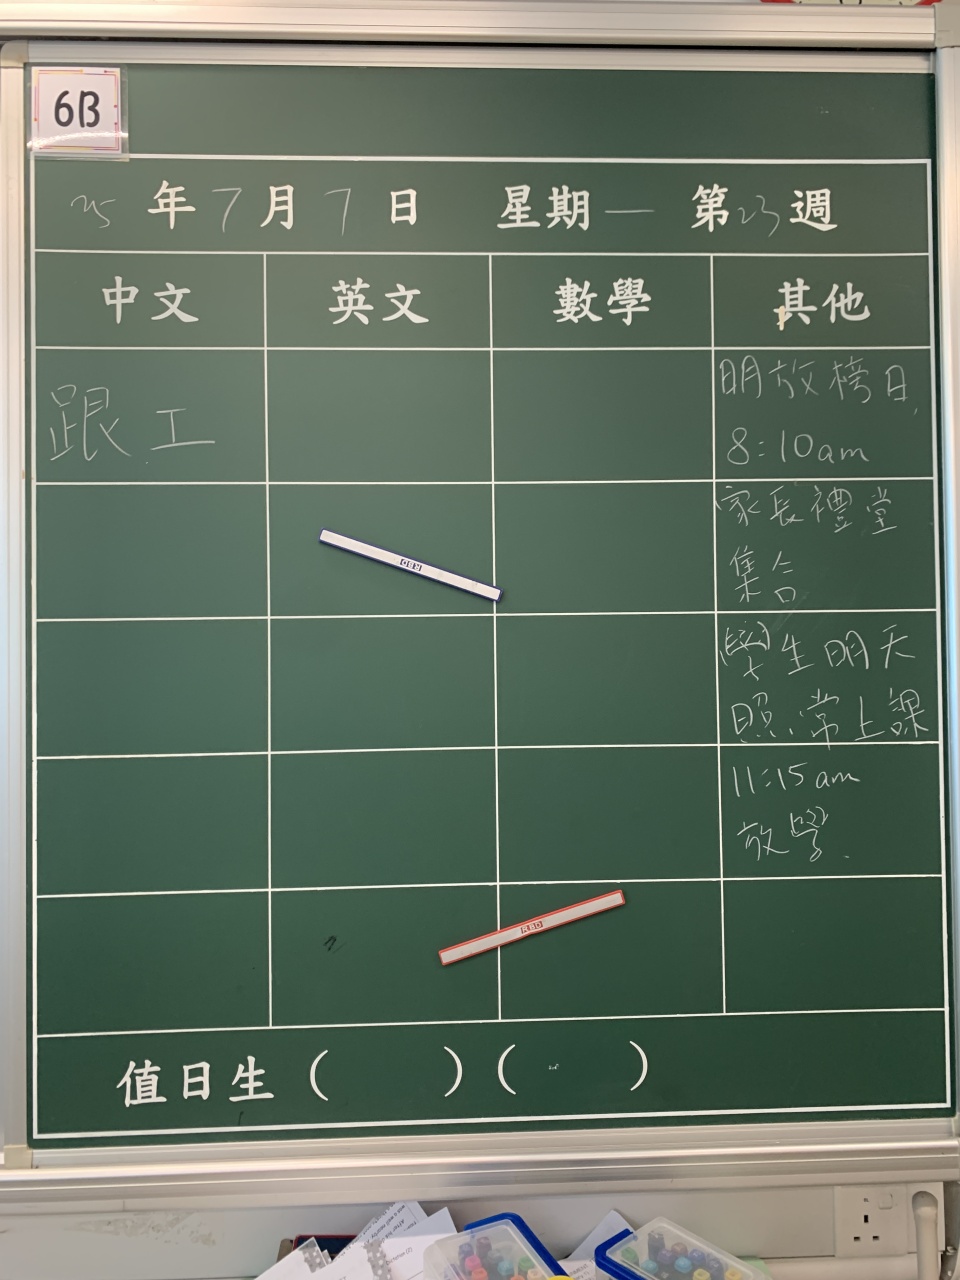 6B
25 年 7 月 7 日 星期一 第 23 週
中文 英文 數學 其他
跟工
明放榜日,
8:10am
家長禮堂
集合
學生明天
照常上課
11:15am
放學.
RBD
RBD
值日生 ( ) ( )